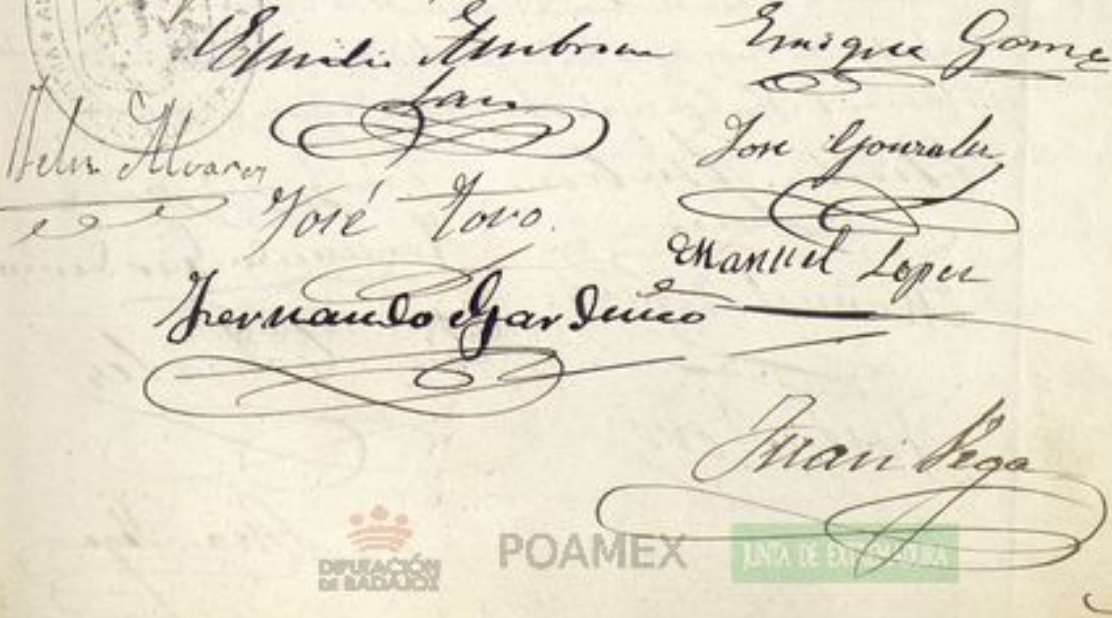 Emilio Ambrona Enrique Gomez
José Gonzalez
Alvarez
José Toro.
Manuel Lopez
Fernando Garduño
Juan Vega
DIPUTACIÓN
DE BADAJOZ
POAMEX
JUNTA DE EXTREMADURA